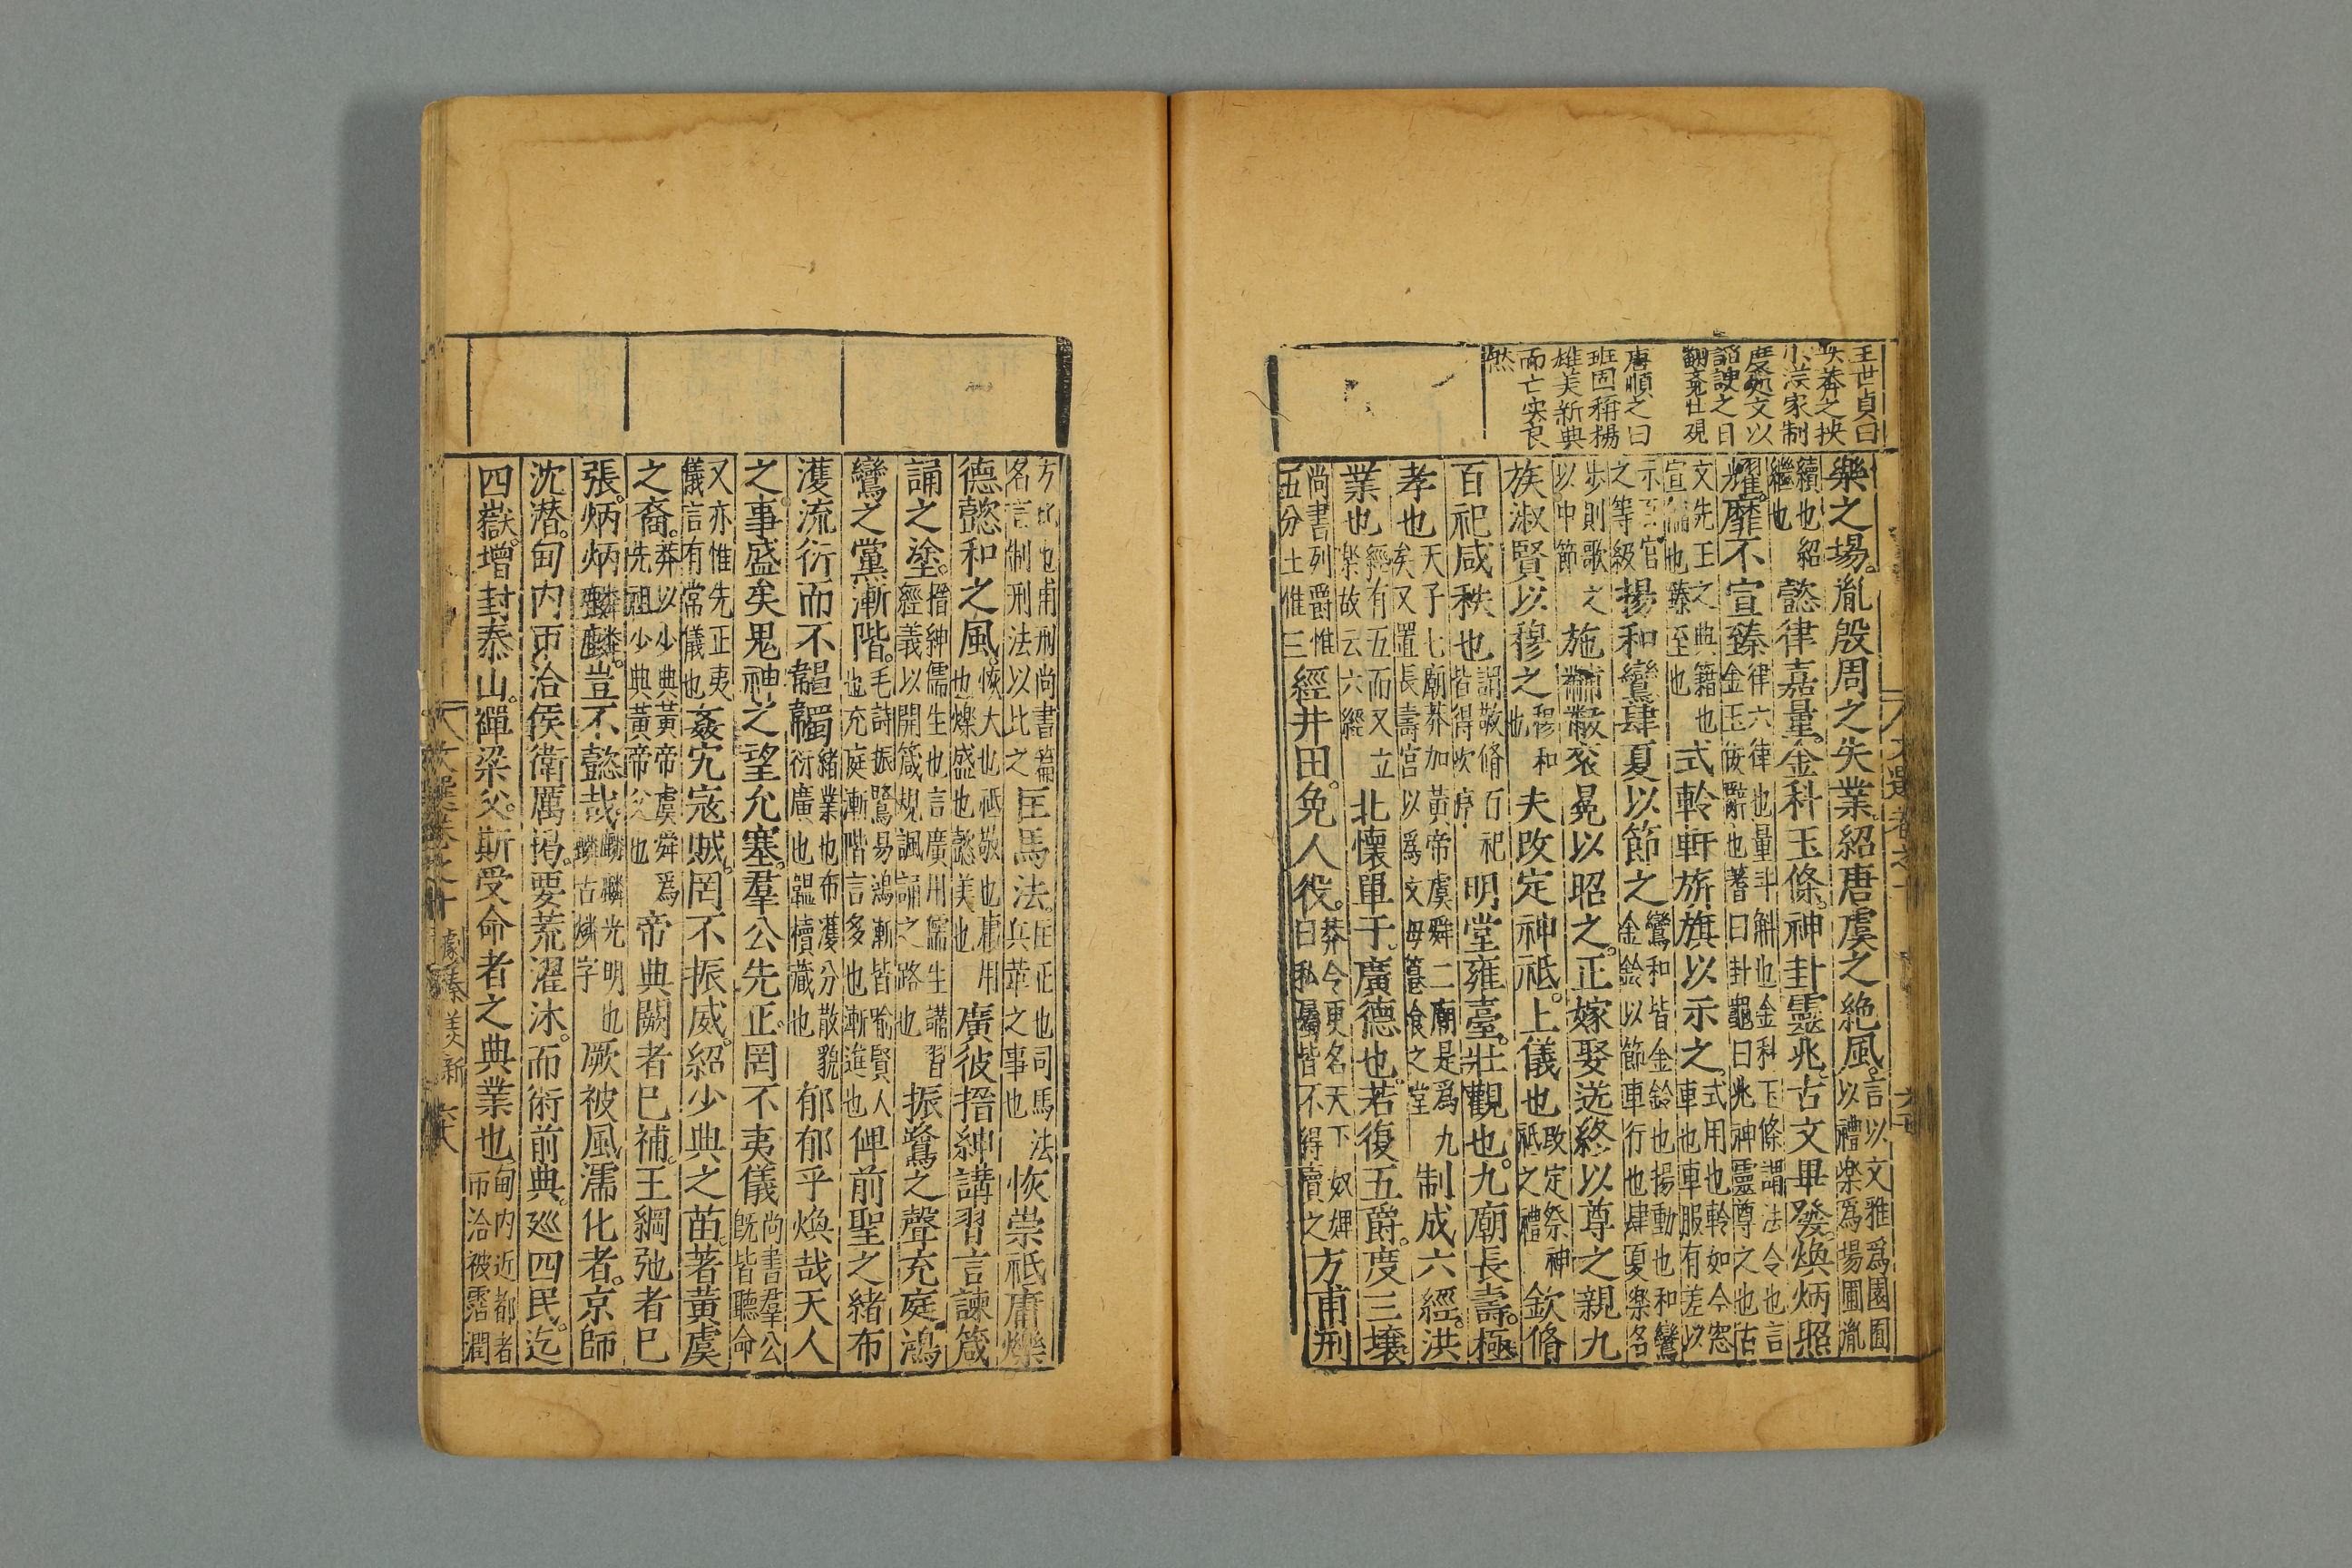 王世貞曰
小漢家制
度処文以
諂諛之曰
唐順之曰
班固稱揚
雄美新典
而亡実良
然
樂之場。胤殷周之失業。紹唐虞之絶風。言以文雅爲園囿以禮樂爲場圃胤
續也紹繼也懿律嘉量。金科玉條。神卦靈兆。古文畢發。煥炳照
耀。靡不宣臻律六律也量斗斛也金科玉條謂法令也言金玉佞辭也蓍曰卦龜曰兆神靈尊之也古
文先王之典籍也宣徧也臻至也式軨軒旂旗以示之。式用也軨如今窓車也車服有差以
示百官之等級揚和鸞肆夏以節之鸞和皆金鈴也揚動也和鸞金鈴以節車行也肆夏樂名
步則歌之以中節施黼黻衮冕以昭之。正嫁娶送終以尊之親九
族淑賢以穆之穆和也夫改定神祗。上儀也改定祭神祗之禮欽脩
百祀咸秩也謂敬脩百祀皆得次序明堂雍臺。壯觀也。九廟長壽。極
孝也天子七廟莽加黄帝虞舜二廟是爲九矣又置長壽宮以爲文母篹飡之堂制成六經。洪
業也經有五而又立樂故云六經北懷單于。廣德也。若復五爵。度三壤
尚書列爵惟五分土惟三經井田。免人役。莽令更名天下奴婢曰私屬皆不得賣之方甫刑
方比也甫刑尚書篇名言制刑法以比之匡馬法。匡正也司馬法兵革之事也恢崇祗庸爍
德懿和之風。恢大也祗敬也庸用也爍盛也懿美也廣彼搢紳講習言諫箴
誦之塗。搢紳儒生也言廣用儒生講習經義以開箴規諷誦之路也振鷺之聲充庭。鴻
鸞之黨漸階。毛詩振鷺易鴻漸皆喻賢人也充庭漸階言多也漸進也俾前聖之緒布
濩流衍而不韞韣緒業也布濩分散貌衍廣也韞櫝藏也郁郁乎煥哉天人
之事。盛矣鬼神之望允塞。羣公先正。罔不夷儀尚書羣公既皆聽命
又亦惟先正夷儀言有常儀也姦宄寇賊。罔不振威。紹少典之苗。著黄虞
之裔。莽以少典黄帝虞舜爲先祖少典黄帝父也帝典闕者已補。王綱弛者已
張。炳炳麟麟。豈不懿哉麟麟光明也麟古燐字厥被風濡化者。京師
沈潜。甸内帀洽。侯衛厲揭。要荒濯沐。而術前典。廵四民。迄
四嶽。增封泰山。禪梁父。斯受命者之典業也甸内近都者帀洽被霑潤
文選卷之十 劇秦美新